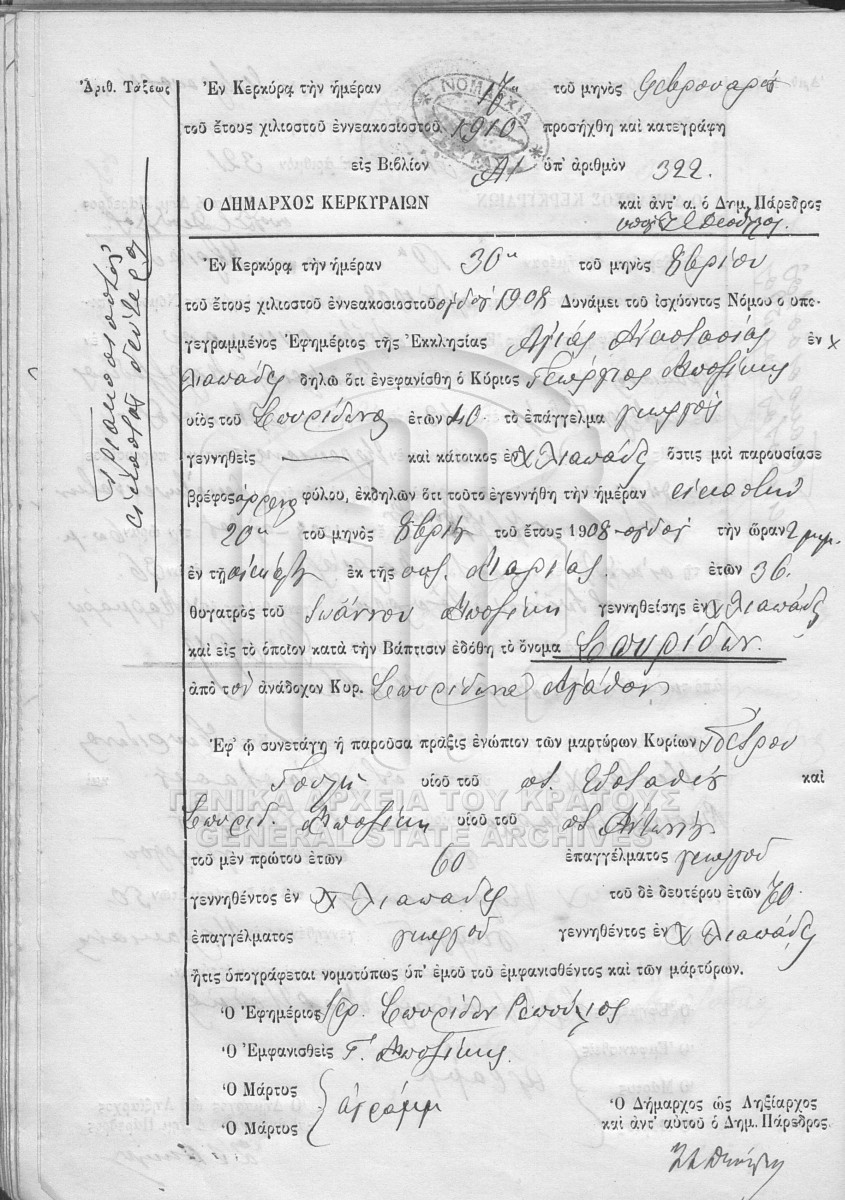 Ἀριθ. Τάξεως
Ἐν Κερκύρᾳ τὴν ἡμέραν 17η τοῦ μηνὸς Φεβρουαρίου
τοῦ ἔτους χιλιοστοῦ ἐννεακοσιοστοῦ 1910 προσήχθη καὶ κατεγράφη
εἰς Βιβλίον Α1 ὑπ' ἀριθμὸν 322.
ΝΟΜΑΡΧΙΑ
Ο ΔΗΜΑΡΧΟΣ ΚΕΡΚΥΡΑΙΩΝ καὶ ἀντ' α. ὁ Δημ. Πάρεδρος
τριακοσιοστὸς
εἰκοστὸς δεύτερος
Ἐν Κερκύρᾳ τὴν ἡμέραν 30η τοῦ μηνὸς 8βρίου
τοῦ ἔτους χιλιοστοῦ ἐννεακοσιοστοῦ ὀγδόου 1908 Δυνάμει τοῦ ἰσχύοντος Νόμου ὁ ὑπο-
γεγραμμένος Ἐφημέριος τῆς Ἐκκλησίας Ἁγίας Ἀναστασίας ἐν χ
Λιαπάδες δηλῶ ὅτι ἐνεφανίσθη ὁ Κύριος Γεώργιος
υἱὸς τοῦ Σπυρίδωνος ἐτῶν 40 τὸ ἐπάγγελμα γεωργὸς
γεννηθεὶς — καὶ κάτοικος ἐν χ Λιαπάδες ὅστις μοὶ παρουσίασε
βρέφος ἄρρενος φύλου, ἐκδηλῶν ὅτι τοῦτο ἐγεννήθη τὴν ἡμέραν εἰκοστὴν
20ην τοῦ μηνὸς 8βρίου τοῦ ἔτους 1908 ὀγδόου τὴν ὥραν 2 μ.μ.
ἐν τῇ οἰκίᾳ ἐκ τῆς συζ. Μαρίας ἐτῶν 36.
θυγατρὸς τοῦ Ἰωάννου γεννηθείσης ἐν χ Λιαπάδες
καὶ εἰς τὸ ὁποῖον κατὰ τὴν Βάπτισιν ἐδόθη τὸ ὄνομα Σπυρίδων.
ἀπὸ τὸν ἀνάδοχον Κυρ. Σπυρίδωνα Ἀγάθον
Ἐφ' ᾧ συνετάγη ἡ παροῦσα πρᾶξις ἐνώπιον τῶν μαρτύρων Κυρίων Πέτρου
υἱοῦ τοῦ ποτ. Εὐσταθίου καὶ
ΓΕΝΙΚΑ ΑΡΧΕΙΑ ΤΟΥ ΚΡΑΤΟΥΣ
Σπυρίδ. υἱοῦ τοῦ ποτ. Ἀντωνίου
GENERAL STATE ARCHIVES
τοῦ μὲν πρώτου ἐτῶν 60 ἐπαγγέλματος γεωργοῦ
γεννηθέντος ἐν χ Λιαπάδες τοῦ δὲ δευτέρου ἐτῶν 70.
ἐπαγγέλματος γεωργοῦ γεννηθέντος ἐν χ Λιαπάδες
ἥτις ὑπογράφεται νομοτύπως ὑπ' ἐμοῦ τοῦ ἐμφανισθέντος καὶ τῶν μαρτύρων.
Ὁ Ἐφημέριος Ἱερ. Σπυρίδων
Ὁ Ἐμφανισθεὶς Γ.
Ὁ Μάρτυς
ἀγράμμ
Ὁ Μάρτυς
Ὁ Δήμαρχος ὡς Ληξίαρχος
καὶ ἀντ' αὐτοῦ ὁ Δημ. Πάρεδρος